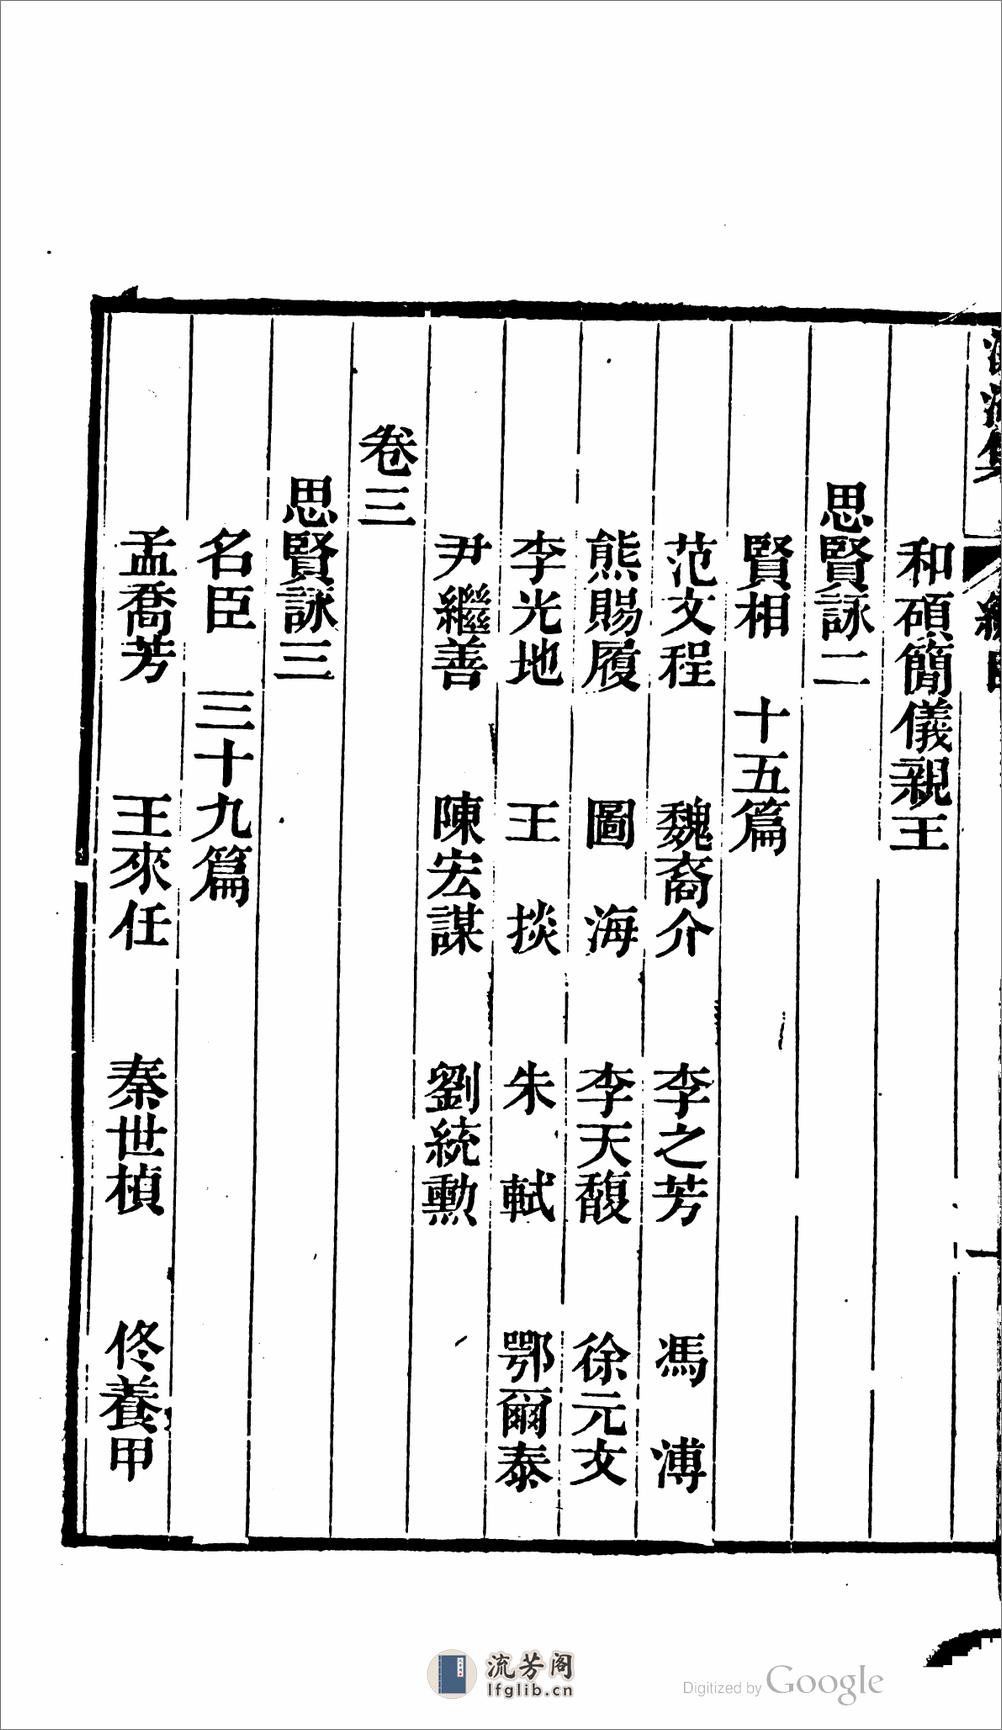 和碩簡儀親王
思賢詠二
賢相 十五篇
范文程 魏裔介 李之芳 馮 溥
熊賜履 圖 海 李天馥 徐元文
李光地 王 掞 朱 軾 鄂爾泰
尹繼善 陳宏謀 劉統勳
卷三
思賢詠三
名臣 三十九篇
孟喬芳 王來任 秦世楨 佟養甲
流芳阁
lfglib.cn
Digitized by Google